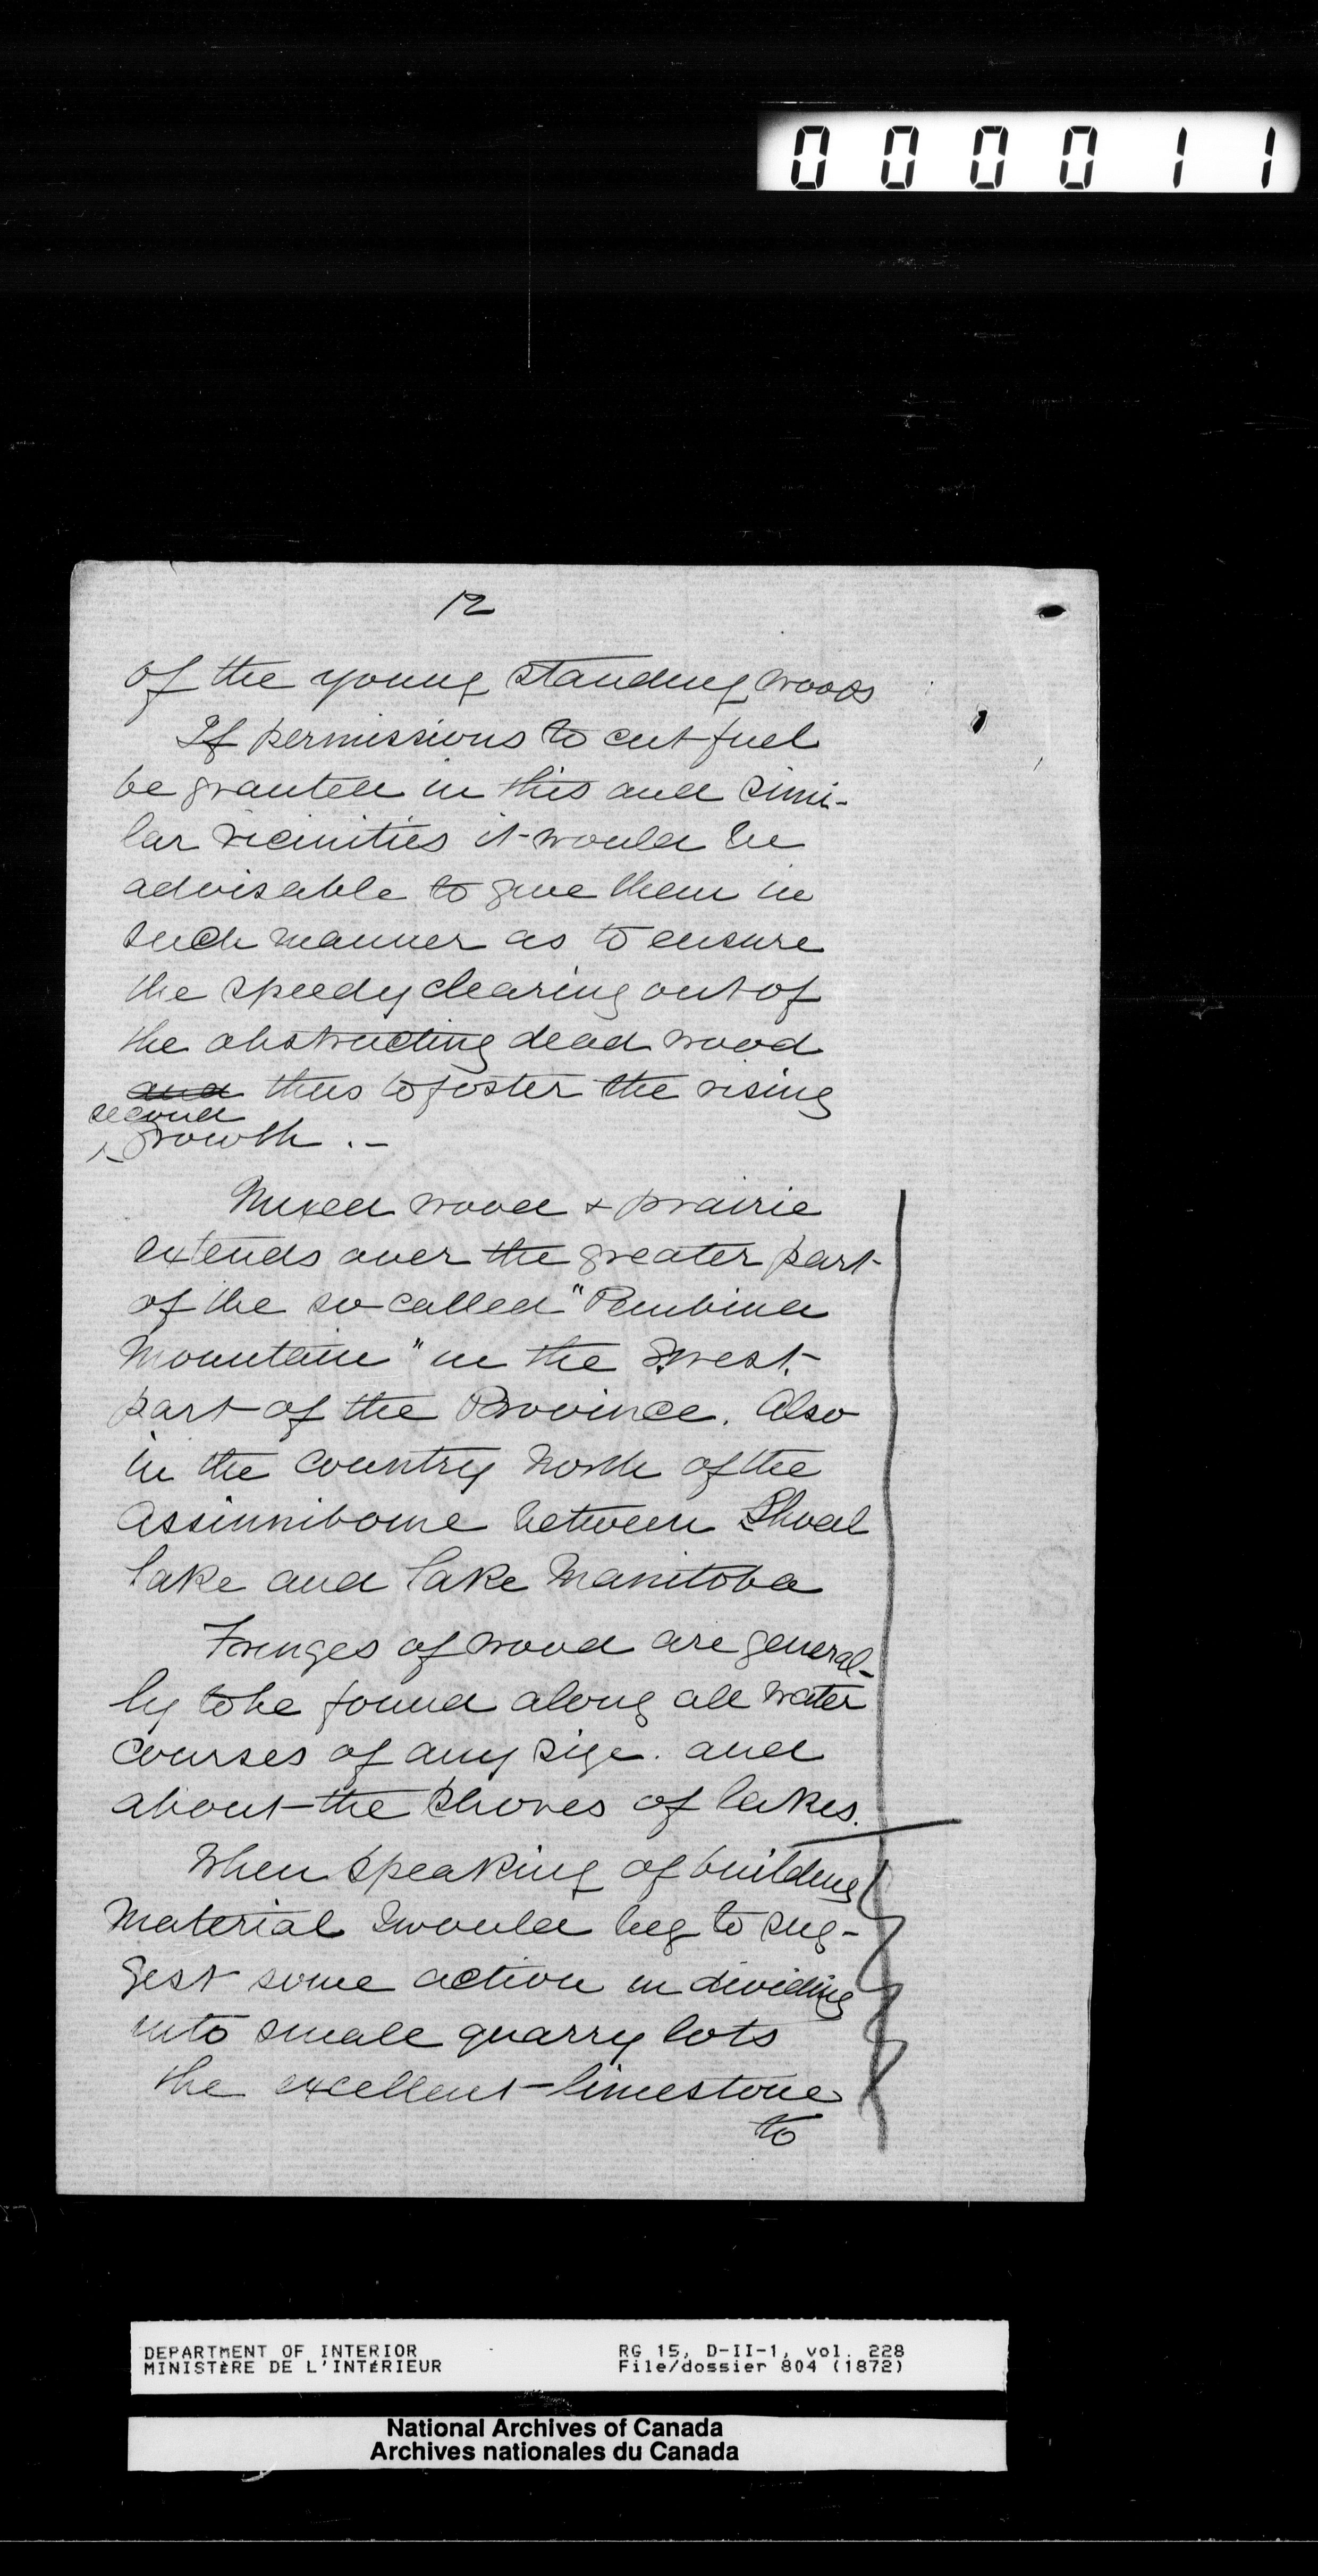 000011
12
of the young standing woods
If permissions to cut fuel
be granted in this and simi-
lar vicinities it would be
advisable to give them in
such manner as to ensure
the speedy clearing out of
the obstructing dead wood
and thus to foster the rising
second
growth . -
Mixed wood & prairie
extends over the greater part
of the so-called "Pembina
Mountain" in the S.west.
part of the Province. Also
in the country north of the
Assinniboine between Shoal
lake and lake Manitoba
Fringes of wood are general-
ly to be found along all water
courses of any size. and
about the shores of lakes.
When speaking of building
material I would beg to sug-
gest some action in dividing
into small quarry lots
the excellent limestone
to
DEPARTMENT OF INTERIOR RG 15, D-II-1, vol. 228
MINISTÈRE DE L'INTÉRIEUR File/dossier 804 (1872)
National Archives of Canada
Archives nationales du Canada